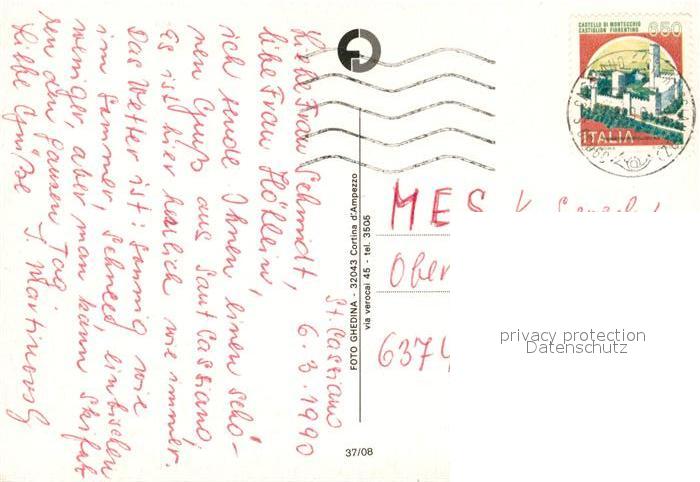 St. Cassiano
6.3.1990
Liebe Frau Schmidt,
liebe Frau Höhlein,
ich sende Ihnen einen schö-
nen Gruß aus Sant Cassiano,
es ist hier herrlich wie immer.
Das Wetter ist: sonnig wie
im Sommer, Schnee, ein bischen
weniger, aber man kann Skifah
ren den ganzen Tag.
Liebe Grüße
FOTO GHEDINA - 32043 Cortina d'Ampezzo
via verocai 45 - tel. 3505
37/08
CASTELLO DI MONTECCHIO
CASTIGLION FIORENTINO
650
ITALIA
MES
Ober
6374
privacy protection
Datenschutz